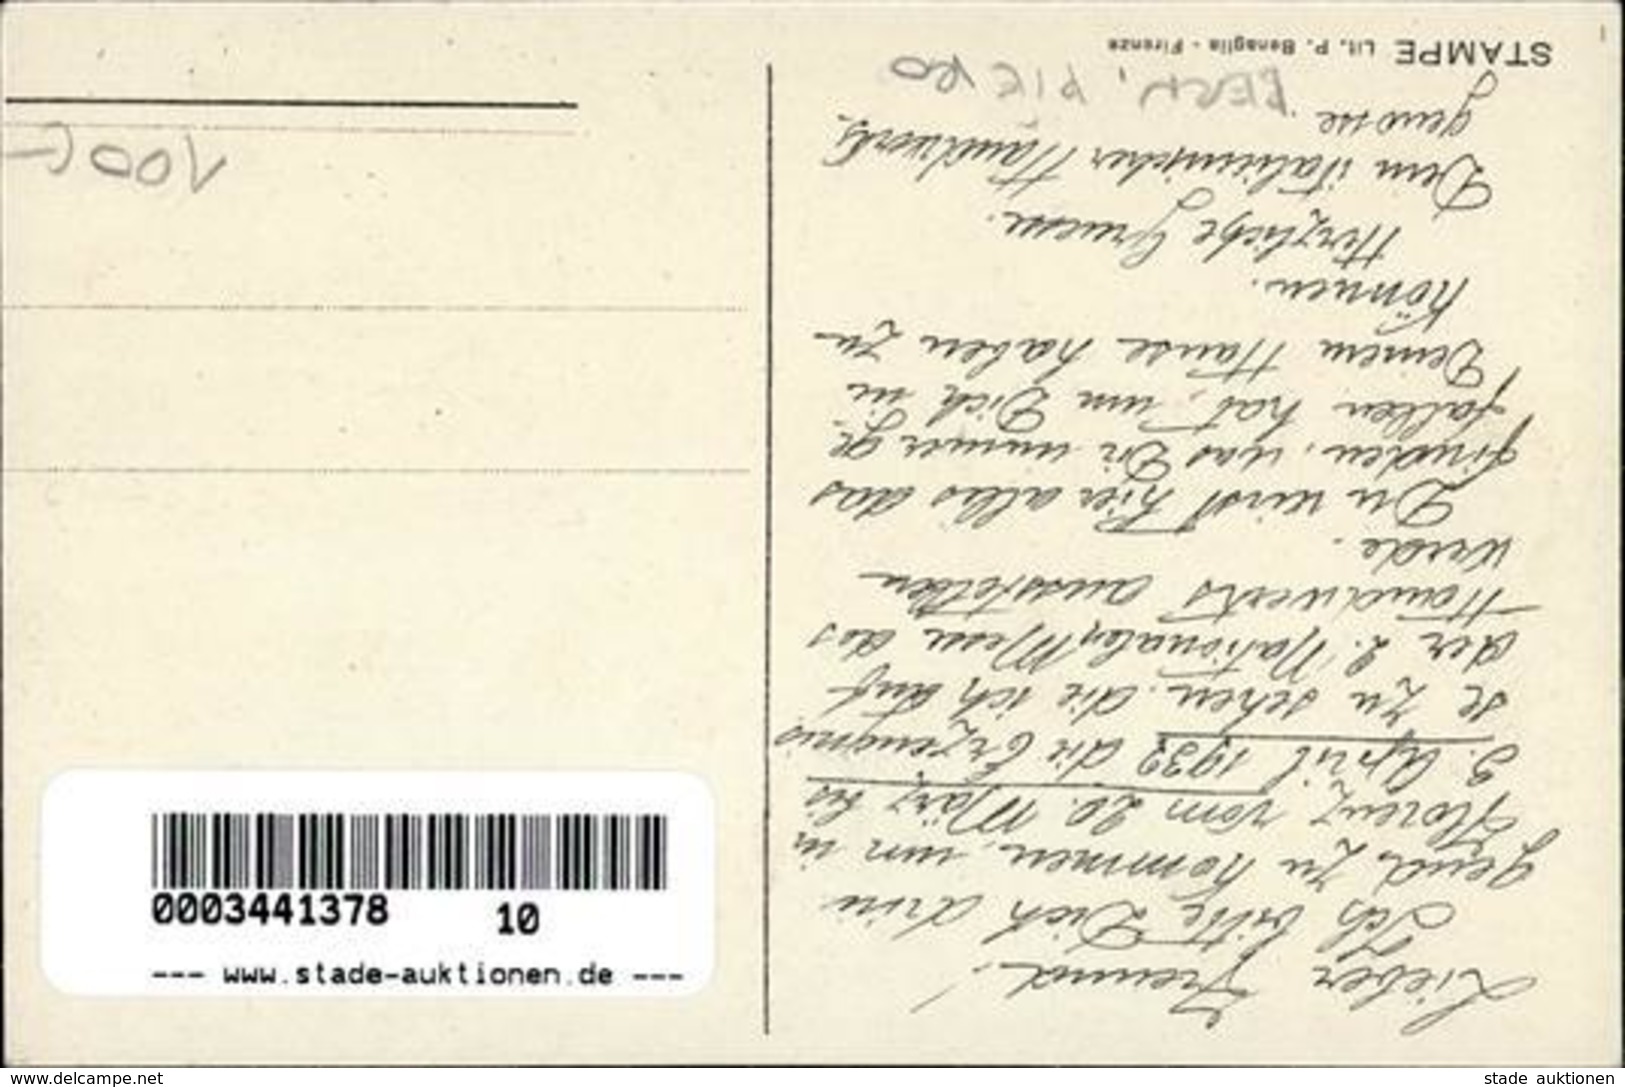 Lieber Freund!
Ich bitte Dich drin
gend, zu kommen, um in
Florenz vom 20. März bis
3. April 1932 die Erzeugnis
se zu sehen, die ich auf
der 2. Nationalen Messe des
Handwerks ausstellen
werde.
Du wirst hier alles das
finden, was Dir immer ge-
fallen hat, um Dich in
Deinem Hause haben zu
können.
Herzliche Gruesse.
Dein italienischer Handwerks-
genosse.
BERN, PIERO
STAMPE Lit. P. Benaglia - Firenze
100,-
0003441378 10
--- www.stade-auktionen.de ---
www.delcampe.net
stade auktionen